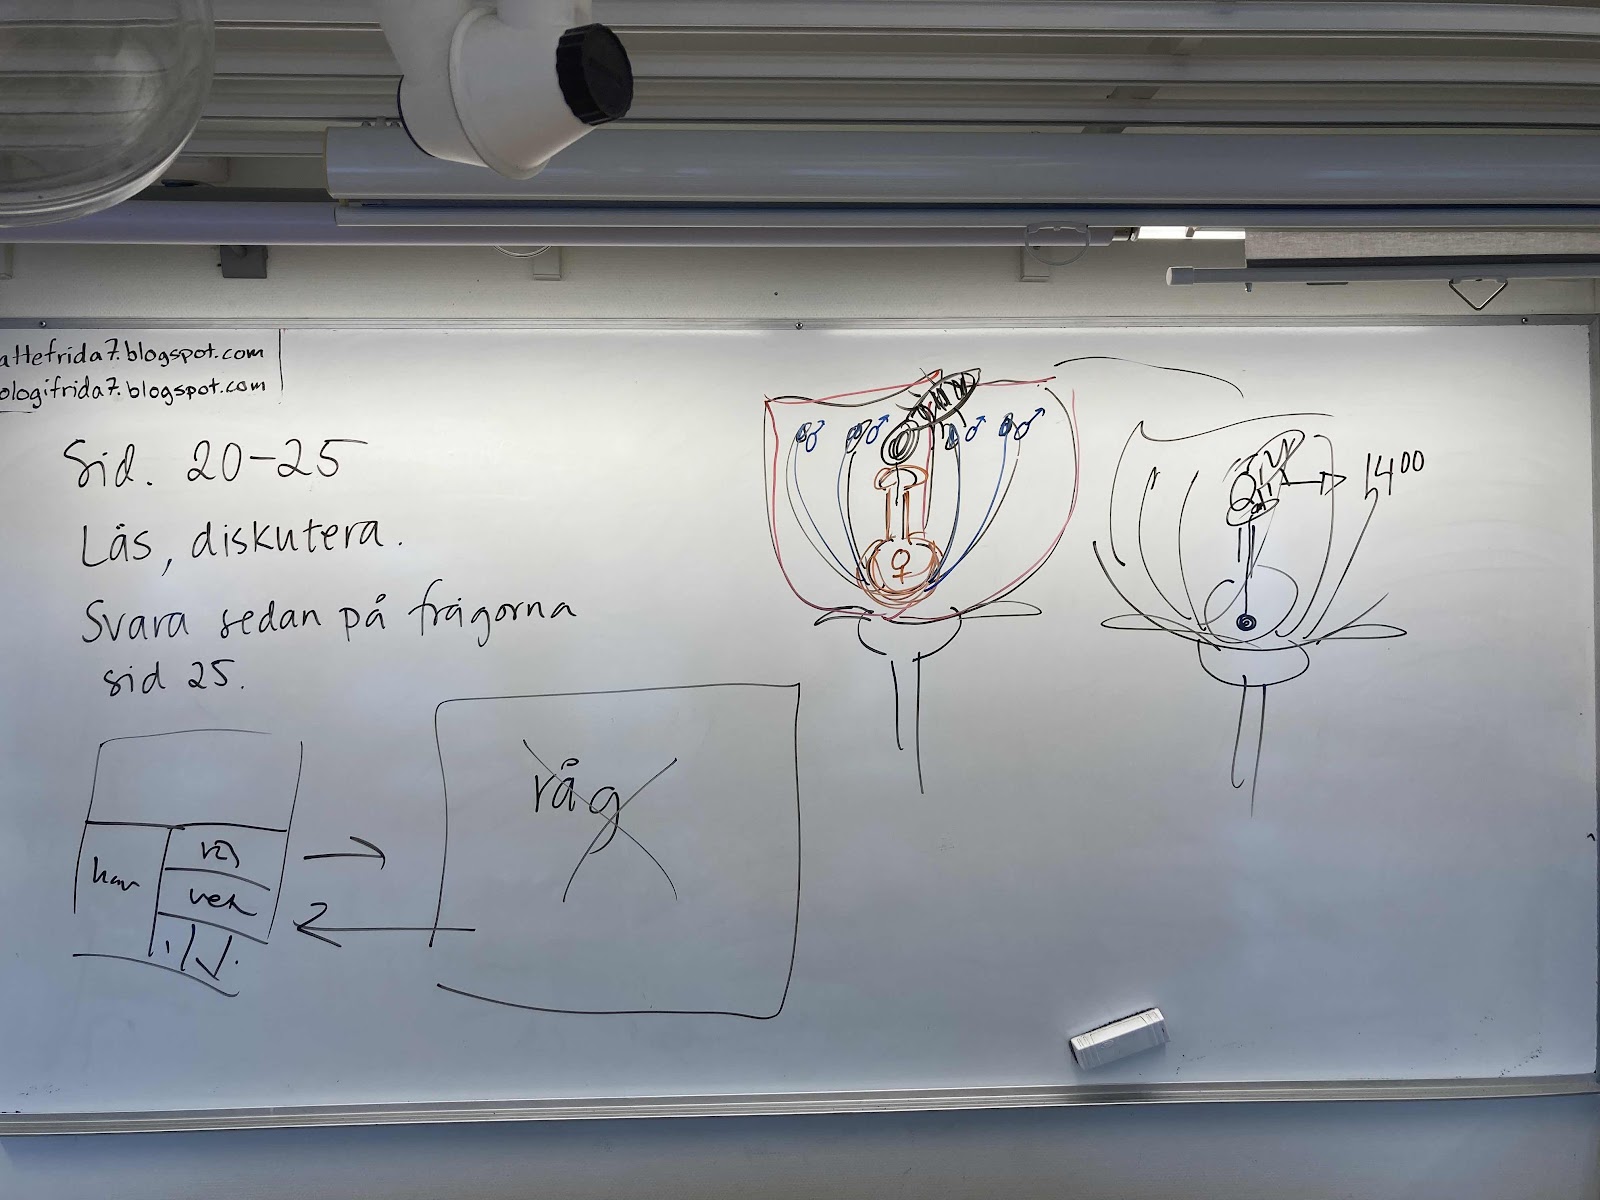 attefrida7.blogspot.com
ologifrida7.blogspot.com
Sid. 20-25
Läs, diskutera.
Svara sedan på frågorna
sid 25.
råg
♂ ♂ ♂ ♂
♀
14⁰⁰